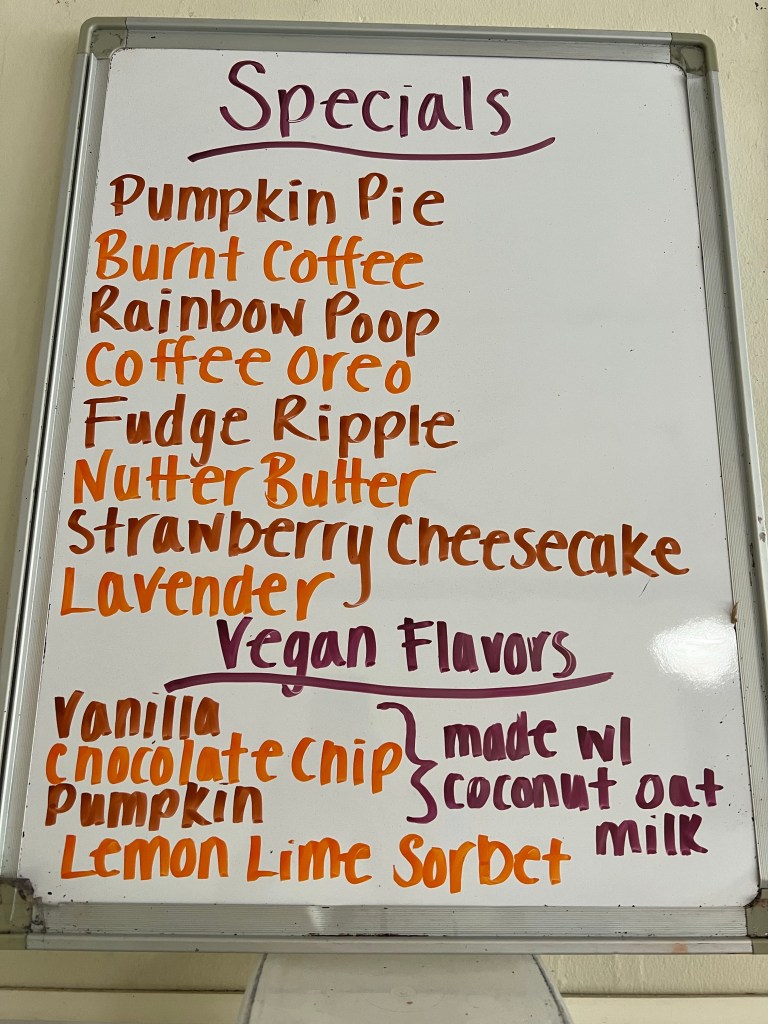 Specials
Pumpkin Pie
Burnt Coffee
Rainbow Poop
Coffee Oreo
Fudge Ripple
Nutter Butter
Strawberry Cheesecake
Lavender
Vegan Flavors
Vanilla
Chocolate Chip
Pumpkin
made w/
coconut oat
milk
Lemon Lime Sorbet